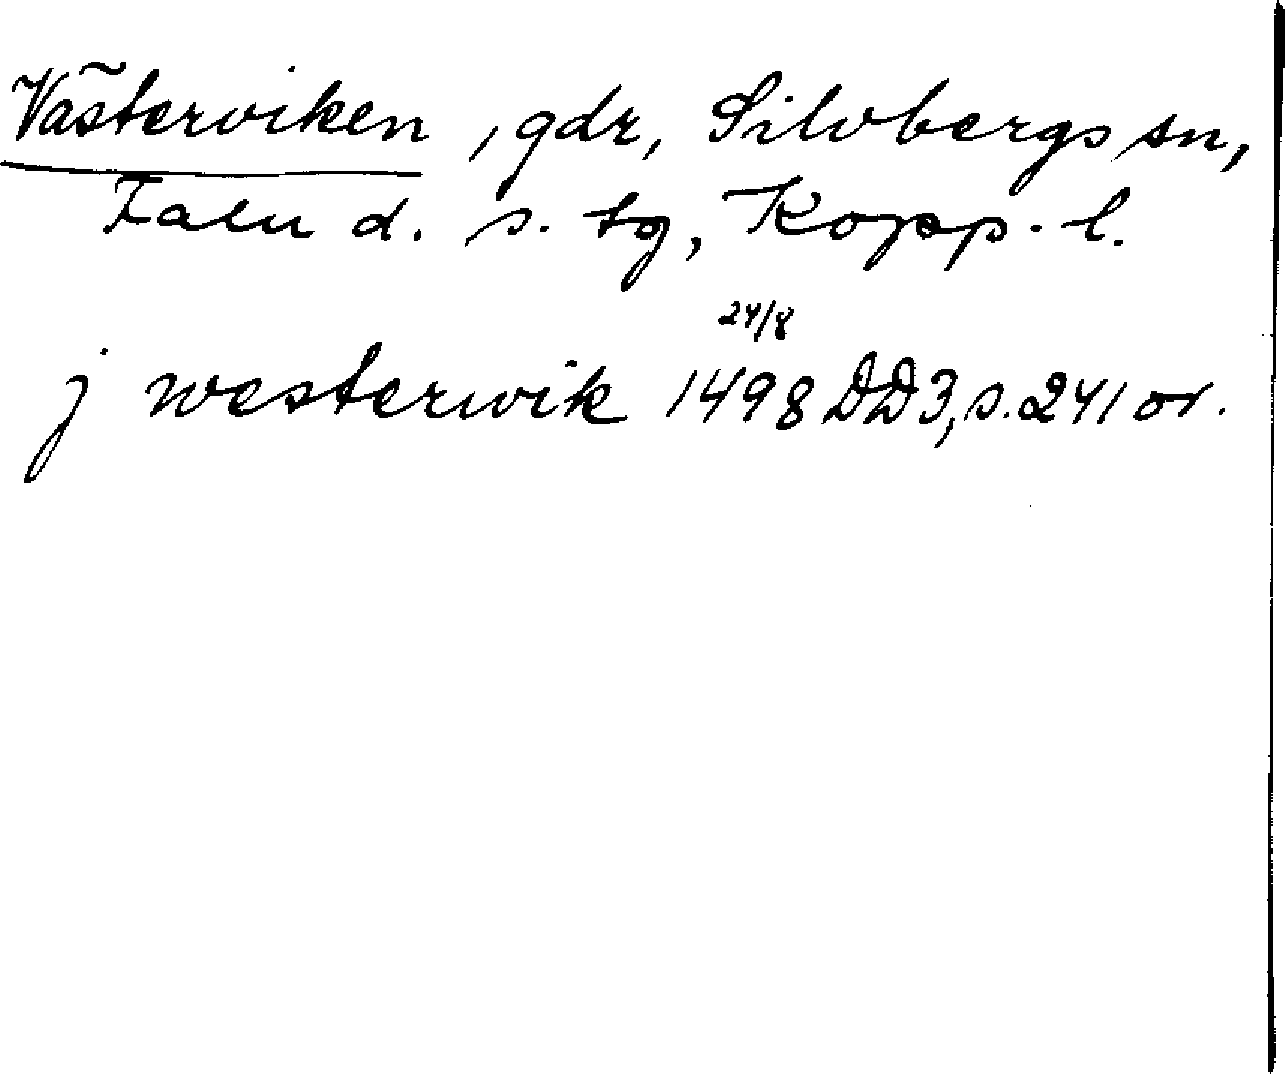 Västerviken, gdr, Silvbergs sn,
Falu d. s. tg, Kopp. l.
24/8
j westerwik 1498 DD3, s. 241 or.